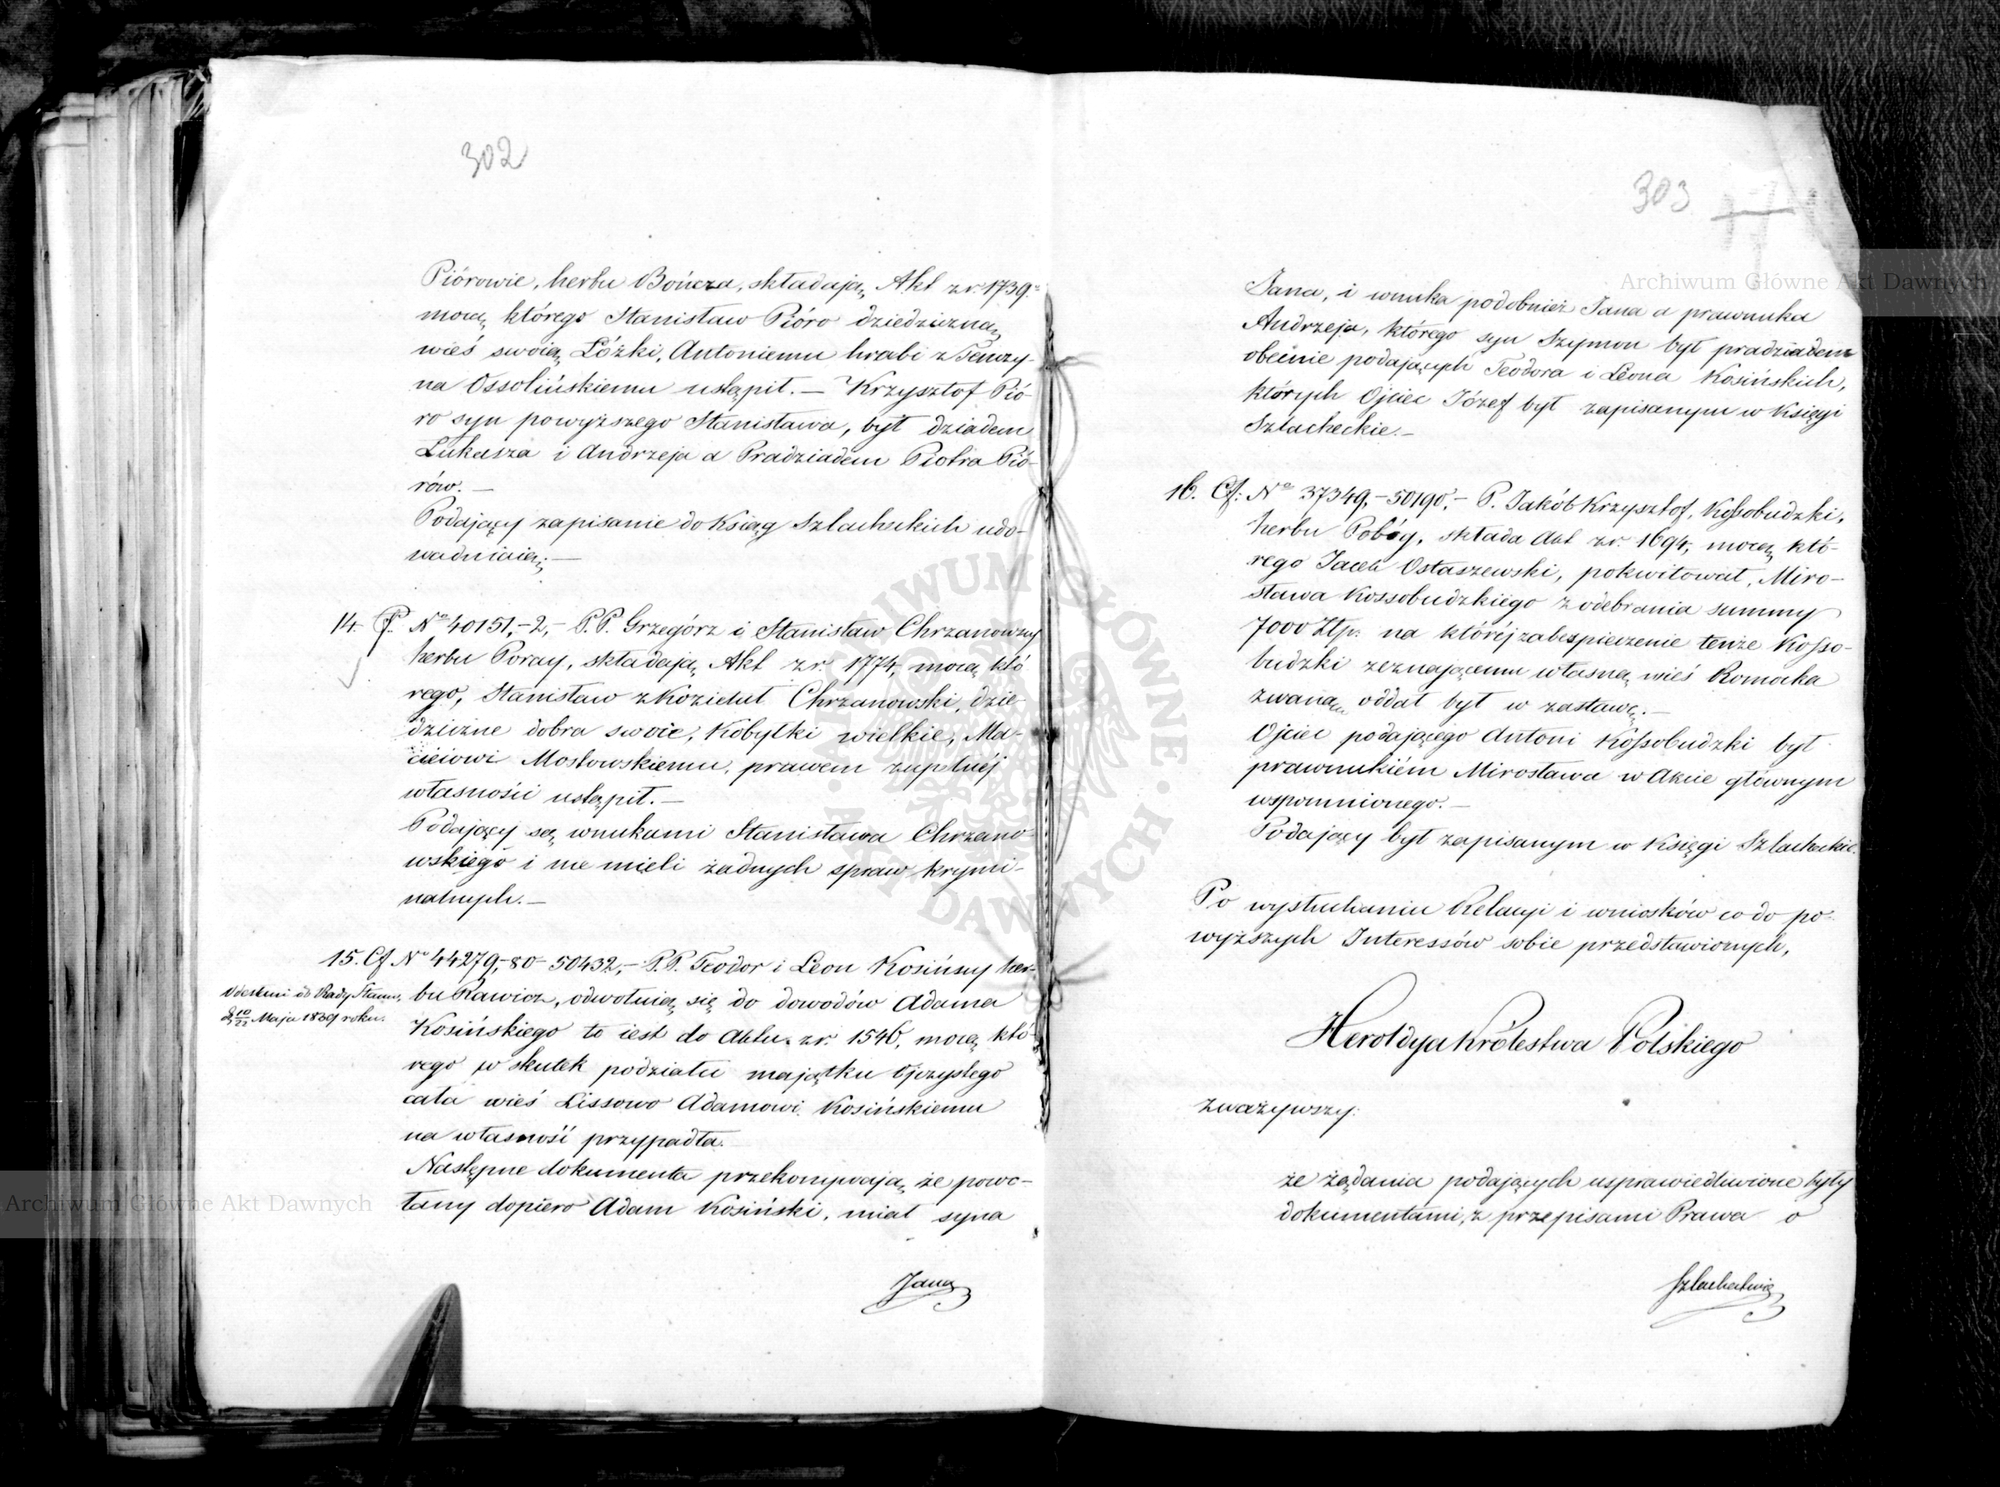 302
Piórowie, herbu Bończa, składają Akt z r. 1739.
mocą którego Stanisław Pióro dziedziczną
wieś swoią Łóżki, Antoniemu hrabi z Tenczy-
na Ossolińskiemu ustąpił. — Krzysztof Pió-
ro syn powyższego Stanisława, był dziadem
Łukasza i Andrzeja a Pradziadem Piotra Pió-
rów. —
Podający zapisanie do Ksiąg Szlacheckich udo-
wadniaią. —
14. Cf. No 40151,-2,- P.P. Grzegórz i Stanisław Chrzanowscy
herbu Poray, składają Akt z r. 1774, mocą któ
rego, Stanisław z Koziełut Chrzanowski, dzie-
dziczne dobra swoie, Kobyłki wielkie, Ma-
cieiowi Mostowskiemu, prawem zupełnéj
własności ustąpił. —
Podający są wnukami Stanisława Chrzano-
wskiego i nie mieli żadnych spraw krymi-
nalnych. —
15. Cf No 44279,-80- 50432,- P.P. Teodor i Leon Kosińscy her-
Odesłani do Rady Stanu,
d 10/22 Maja 1869 roku.
bu Rawicz, odwołuią się do dowodów Adama
Kosińskiego to iest do Aktu z r. 1546, mocą któ-
rego w skutek podziału majątku Ojczystego
cała wieś Lissowo Adamowi Kosińskiemu
na własność przypadła.
Następne dokumenta przekonywają, że powo-
łany dopiero Adam Kosiński, miał syna
Jana
303
Jana, i wnuka podobnież Jana a prawnuka
Andrzeja, którego syn Szymon był pradziadem
obecnie podających Teodora i Leona Kosińskich,
których Ojciec Józef był zapisanym w Księgi
Szlacheckie. —
16. Cf: No 37349,-50190,- P. Jakób Krzysztof, Kossobudzki,
herbu Pobóg, składa Akt z r. 1694, mocą któ-
rego Jacek Ostaszewski, pokwitował, Miro-
sława Kossobudzkiego z odebrania summy
7000 Złp. na któréj zabespieczenie tenże Kosso-
budzki zeznającemu własną wieś Romocka
zwaną oddał był w zastawę. —
Ojciec podającego Antoni Kossobudzki był
prawnukiém Mirosława w Akcie głównym
wspomnionego. —
Podający był zapisanym w Księgi Szlacheckie.
Po wysłuchaniu Relacyi i wniosków co do po-
wyższych Interessów sobie przedstawionych,
Heroldya Królestwa Polskiego
zważywszy:
że żądania podających usprawiedliwione były
dokumentami, z przepisami Prawa o
Szlachectwie
Archiwum Główne Akt Dawnych
Archiwum Główne Akt Dawnych
ARCHIWUM GŁÓWNE AKT DAWNYCH